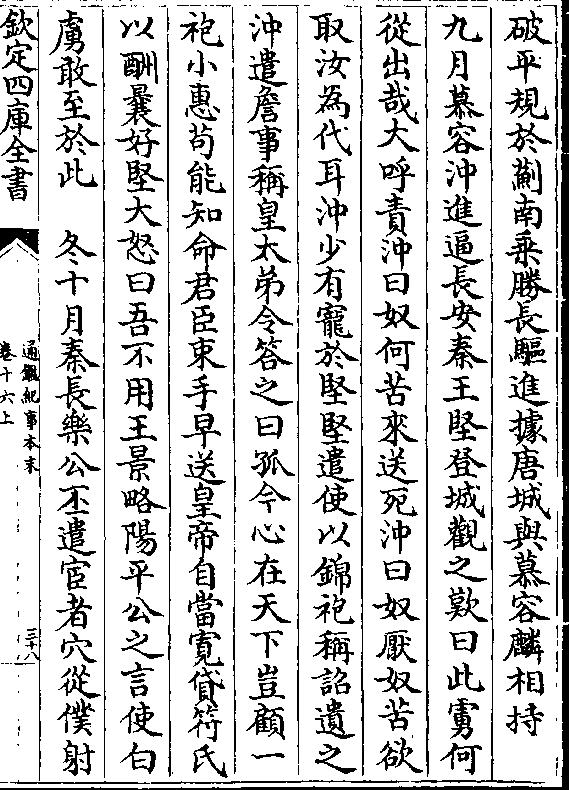 破平規於薊南乗勝長驅進據唐城與慕容麟相持
九月慕容沖進逼長安秦王堅登城觀之歎曰此虜何
從出哉大呼責沖曰奴何苦來送死沖曰奴厭奴苦欲
取汝為代耳沖少有寵於堅堅遣使以錦袍稱詔遺之
沖遣詹事稱皇太弟令答之曰孤今心在天下豈顧一
袍小惠茍能知命君臣束手早送皇帝自當寛貸苻氏
以酬曩好堅大怒曰吾不用王景略陽平公之言使白
虜敢至於此　冬十月秦長樂公丕遣宦者冗從僕射
欽定四庫全書
通鑑紀事本末
卷十六上
三十八